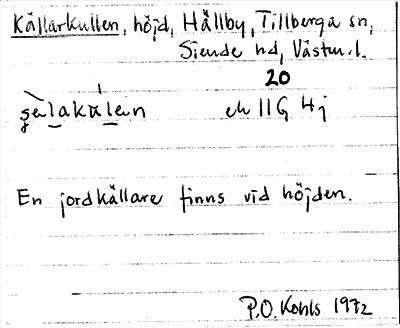 Källarkullen, höjd, Hållby, Tillberga sn,
Siende hd, Västm.l.
20
ek 11G 4j
En jordkällare finns vid höjden.
P.O. Kohls 1972